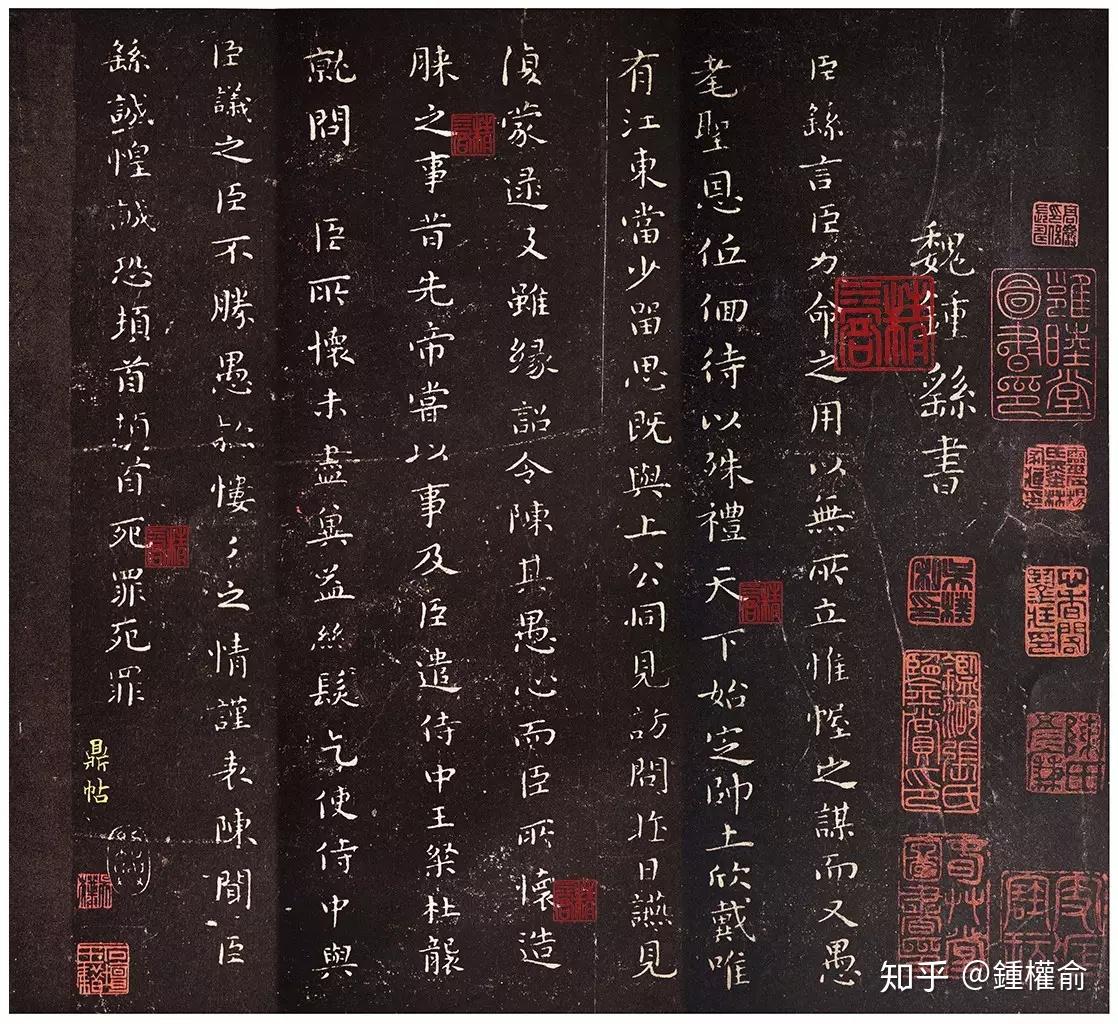 魏鍾繇書
臣繇言臣力命之用以無所立惟幄之謀而又愚
耄聖恩低佪待以殊禮天下始定帥土欣戴唯
有江東當少留思既與上公同見訪問昨日讌見
偵蒙逮及雖緣詔令陳其愚心而臣所懷造
膝之事昔先帝嘗以事及臣遣侍中王粲杜襲
就問 臣所懷未盡冀益絲髮乞使侍中與
臣議之臣不勝愚款慺〻之情謹表陳聞臣
繇誠惶誠恐頓首頓首死罪死罪
鼎帖
雅睦堂圖書印
知乎 @鍾權俞